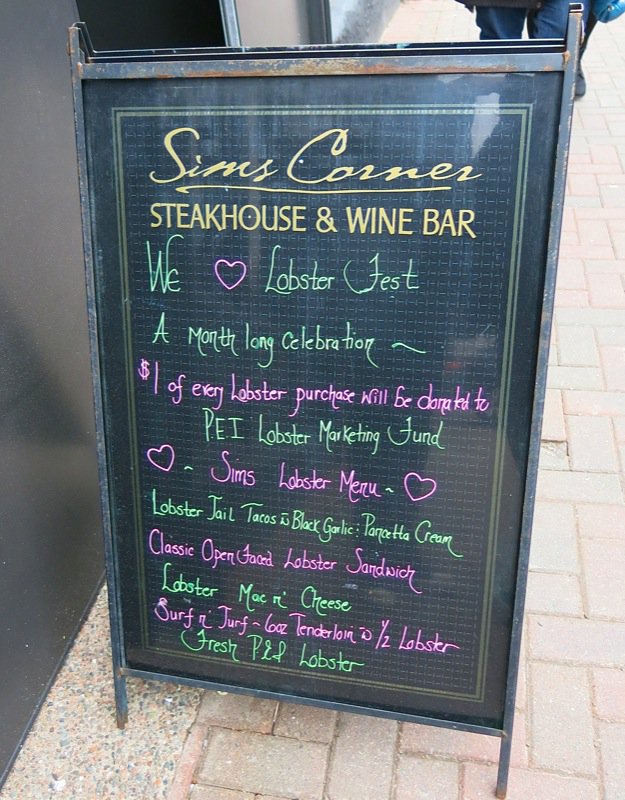 Sims Corner
STEAKHOUSE & WINE BAR
We ♡ Lobster Fest
A month long celebration ~
$1 of every Lobster purchase will be donated to
P.E.I Lobster Marketing Fund
♡ ~ Sims Lobster Menu ~ ♡
Lobster Tail Tacos w̄ Black Garlic & Pancetta Cream
Classic Open Faced Lobster Sandwich
Lobster Mac n' Cheese
Surf n' Turf ~ 6oz Tenderloin w̄ 1/2 Lobster
Fresh P.E.I Lobster